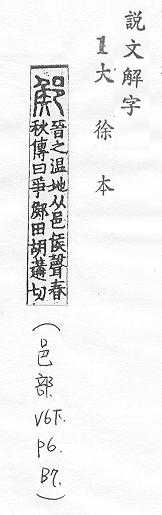 説文解字
1 大徐本
鄇
晉之温地从邑矦聲春
秋傳曰爭鄇田胡遘切
(邑部 V6下. P6. B7.)